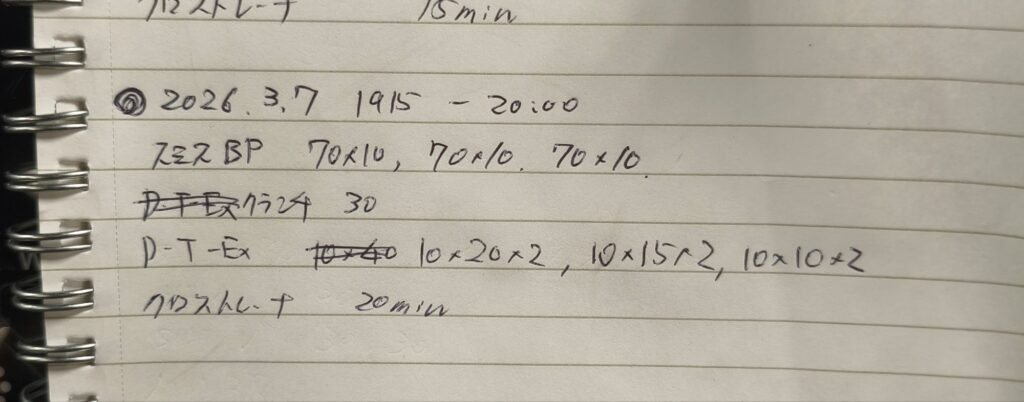 クロストレーナ 15min
◎ 2026.3.7 1915 - 20:00
スミス BP 70×10, 70×10. 70×10.
クランチ 30
D-T-Ex 10×20×2, 10×15×2, 10×10×2
クロストレーナ 20min